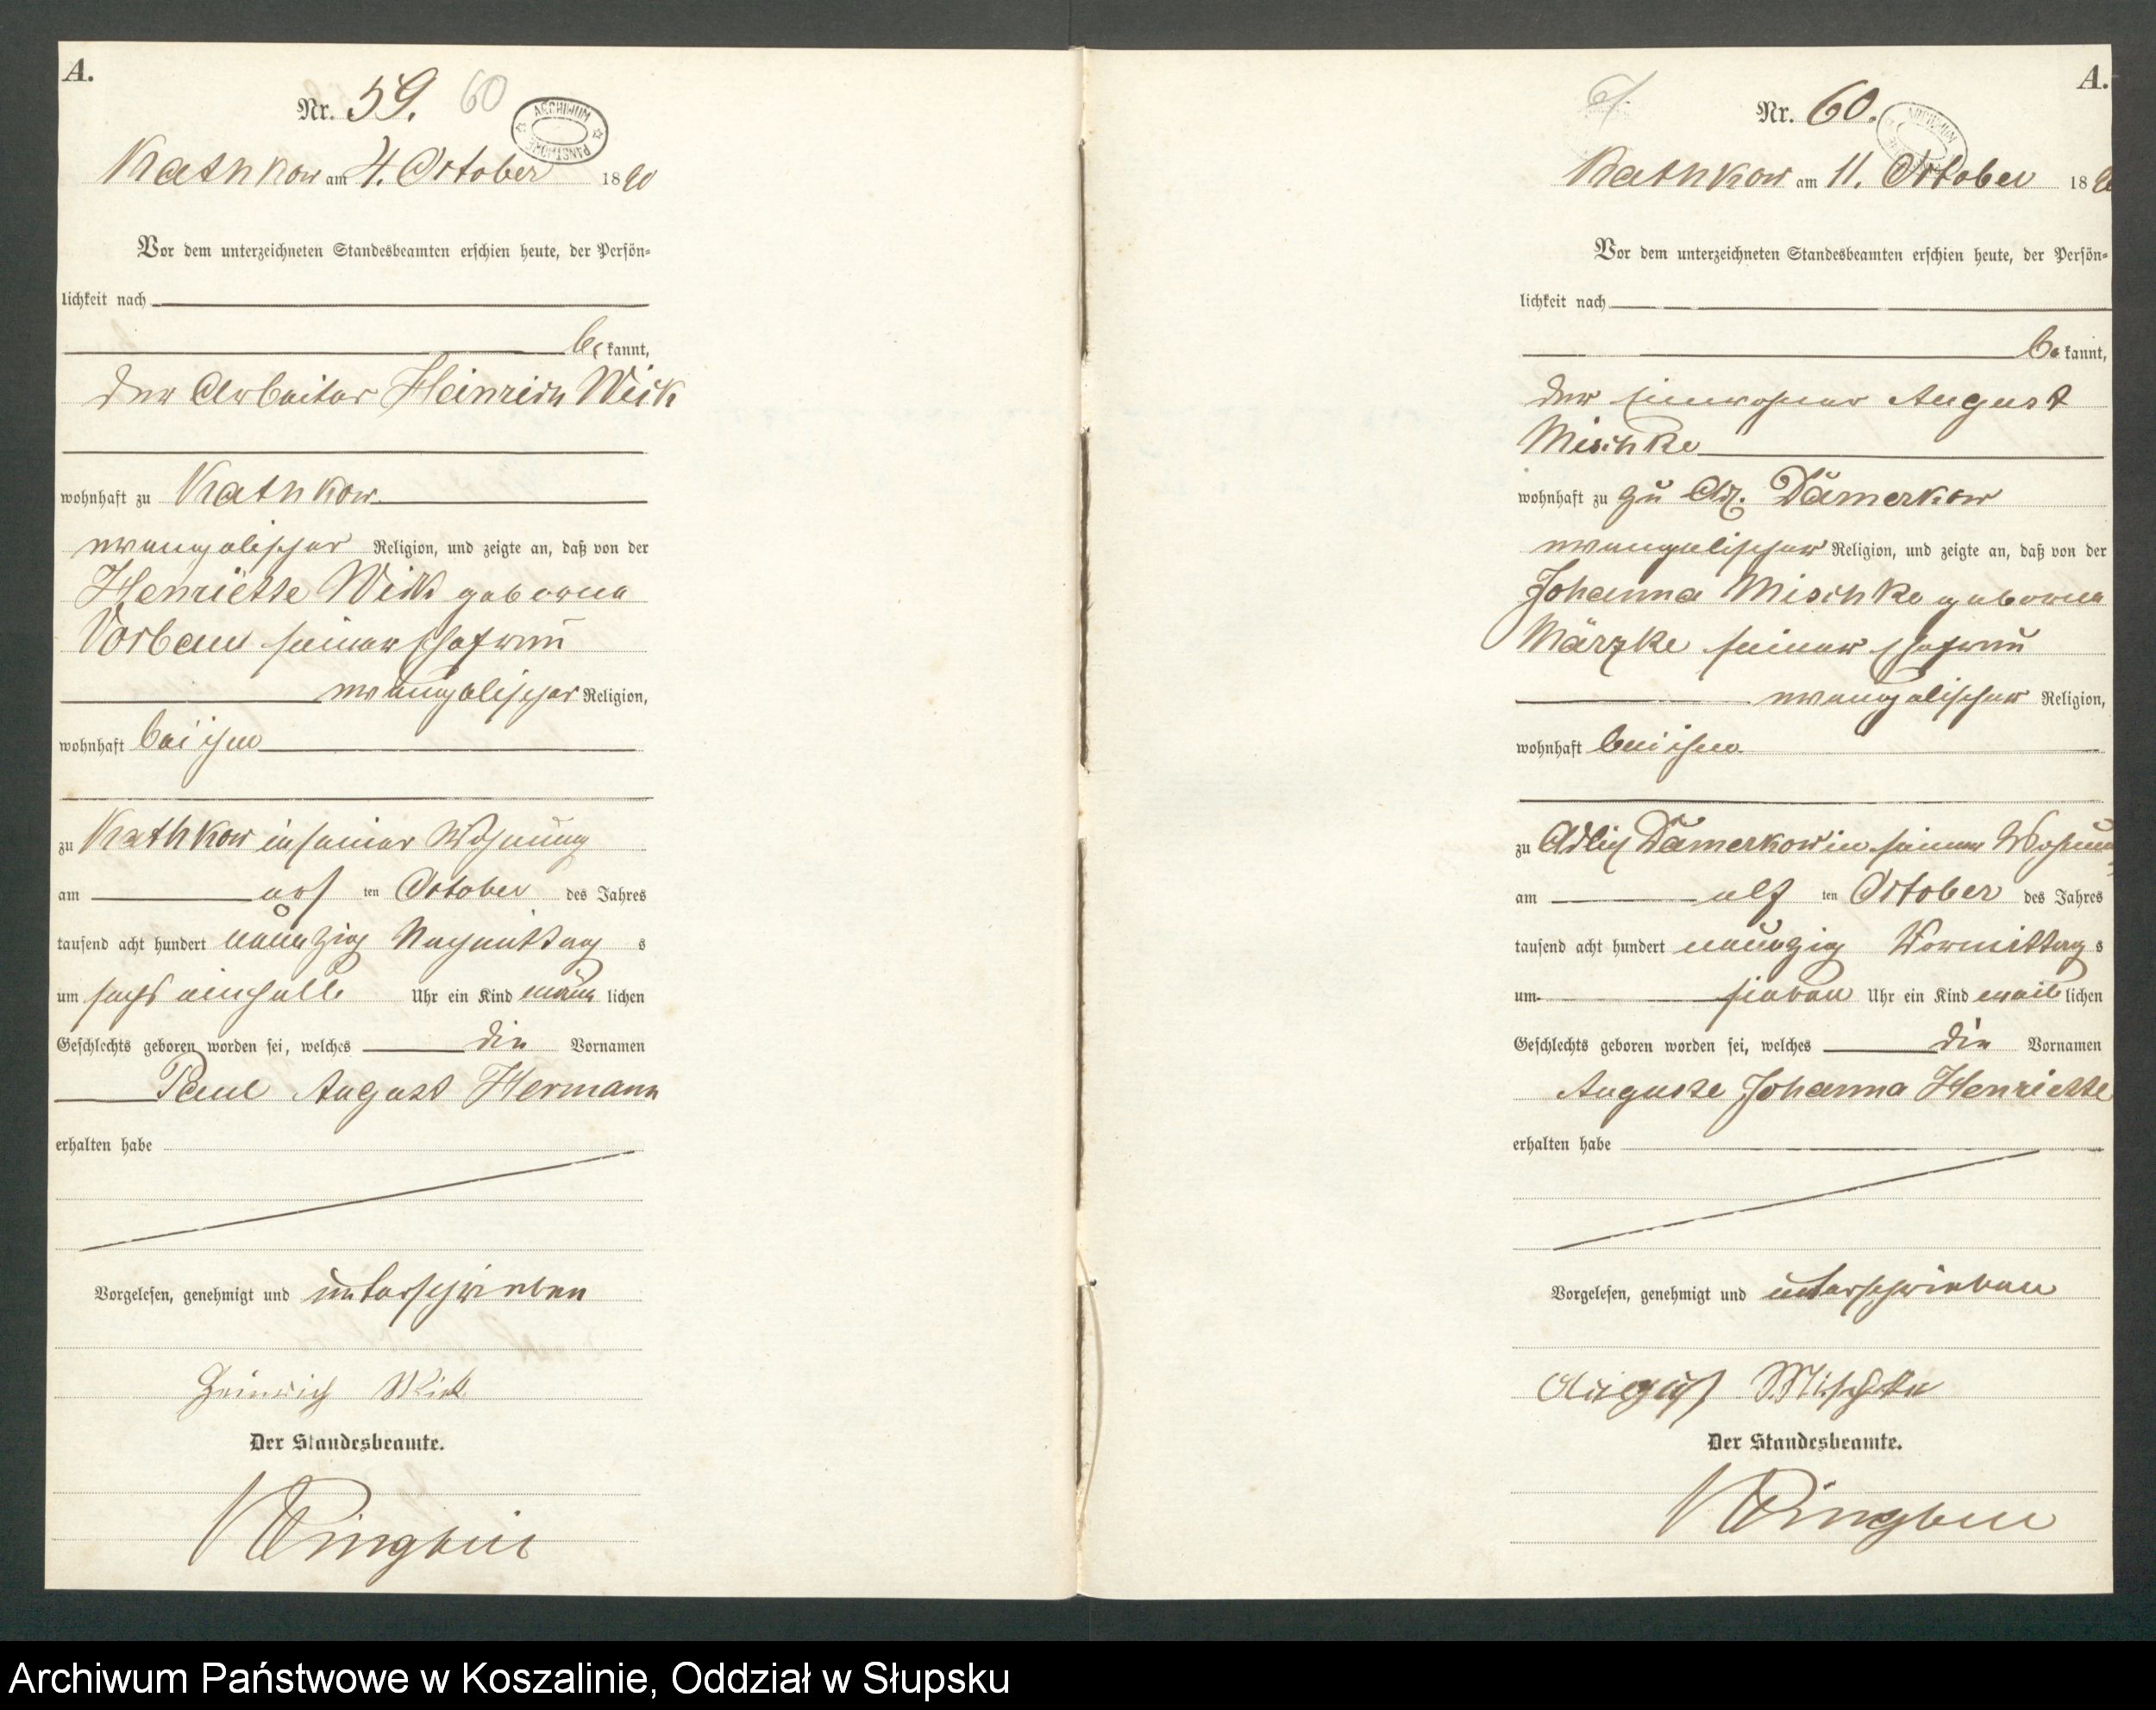 A.
Nr. 59. 60
ARCHIWUM PAŃSTWOWE
Kathkow am 4. October 1890
Vor dem unterzeichneten Standesbeamten erschien heute, der Persön-
lichkeit nach
be kannt,
der Arbeiter Heinrich Wick
wohnhaft zu Kathkow
evangelischer Religion, und zeigte an, daß von der
Henriette Wick geborene
Vorbau seiner Ehefrau
evangelischer Religion,
wohnhaft bei ihm
zu Kathkow in seiner Wohnung
am ten October des Jahres
tausend acht hundert neunzig Nachmittag s
um sechs einhalb Uhr ein Kind männ lichen
Geschlechts geboren worden sei, welches die Vornamen
Paul August Hermann
erhalten habe
Vorgelesen, genehmigt und unterschrieben
Heinrich Wick
Der Standesbeamte.
A.
61
Nr. 60.
ARCHIWUM
Kathkow am 11. October 1890
Vor dem unterzeichneten Standesbeamten erschien heute, der Persön-
lichkeit nach
be kannt,
der Einwohner August
Mischke
wohnhaft zu zu Adl. Dämerkow
evangelischer Religion, und zeigte an, daß von der
Johanna Mischke geborene
Märzke seiner Ehefrau
evangelischer Religion,
wohnhaft bei ihm
zu Adlig Dämerkow in seiner Wohnung
am elf ten October des Jahres
tausend acht hundert neunzig Vormittag s
um sieben Uhr ein Kind weib lichen
Geschlechts geboren worden sei, welches die Vornamen
Auguste Johanna Henriette
erhalten habe
Vorgelesen, genehmigt und unterschrieben
August Mischke
Der Standesbeamte.
Archiwum Państwowe w Koszalinie, Oddział w Słupsku